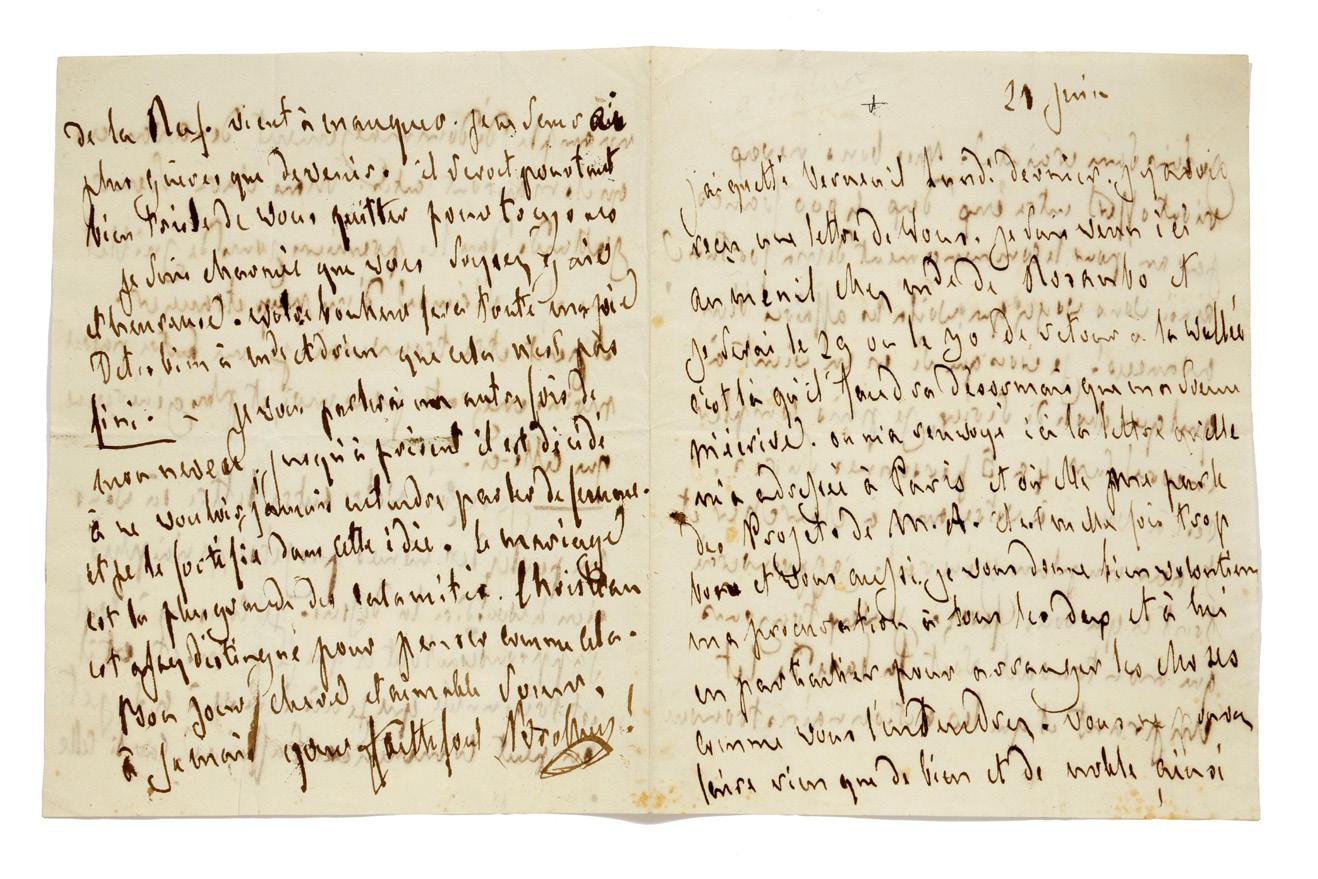 de la vient à manquer. je ne saurai
plus guères que devenir. il seroit pourtant
bien triste de vous quitter pour toujours
je suis charmé que vous soyez gaie
et heureuse. votre bonheur fera toute ma joie
Dites bien à que cela n'est pas
fini. — je vous parlerai un autre fois de
mon neveu, jusqu'à présent il est décidé
à ne vouloir jamais entendre parler de femme.
et je le fortifie dans cette idée. le mariage
est la plus grande des calamités. Christian
est assez distingué pour penser comme cela.
Bon jour chere et aimable soeur,
à jamais your faithfoul Brother!
21 juin
j'ai quitté Verneuil Lundi dernier. j'y avois
reçu une lettre de vous. je suis venu ici
au ménil chez mde de Rosambo et
je serai le 29 ou le 30 de retour à la Vallée
c'est là qu'il faudra désormais que ma soeur
m'écrive. on m'a renvoyé ici la lettre qu'elle
m'a adressée à Paris et où elle me parle
des Projets de M. A. il est mille fois trop
bon et vous aussi, je vous donne bien volontiers
ma procuration à tous les deux et à lui
en particulier pour arranger les choses
comme vous l'entendrez. vous ne pouvez
faire rien que de bien et de noble ainsi